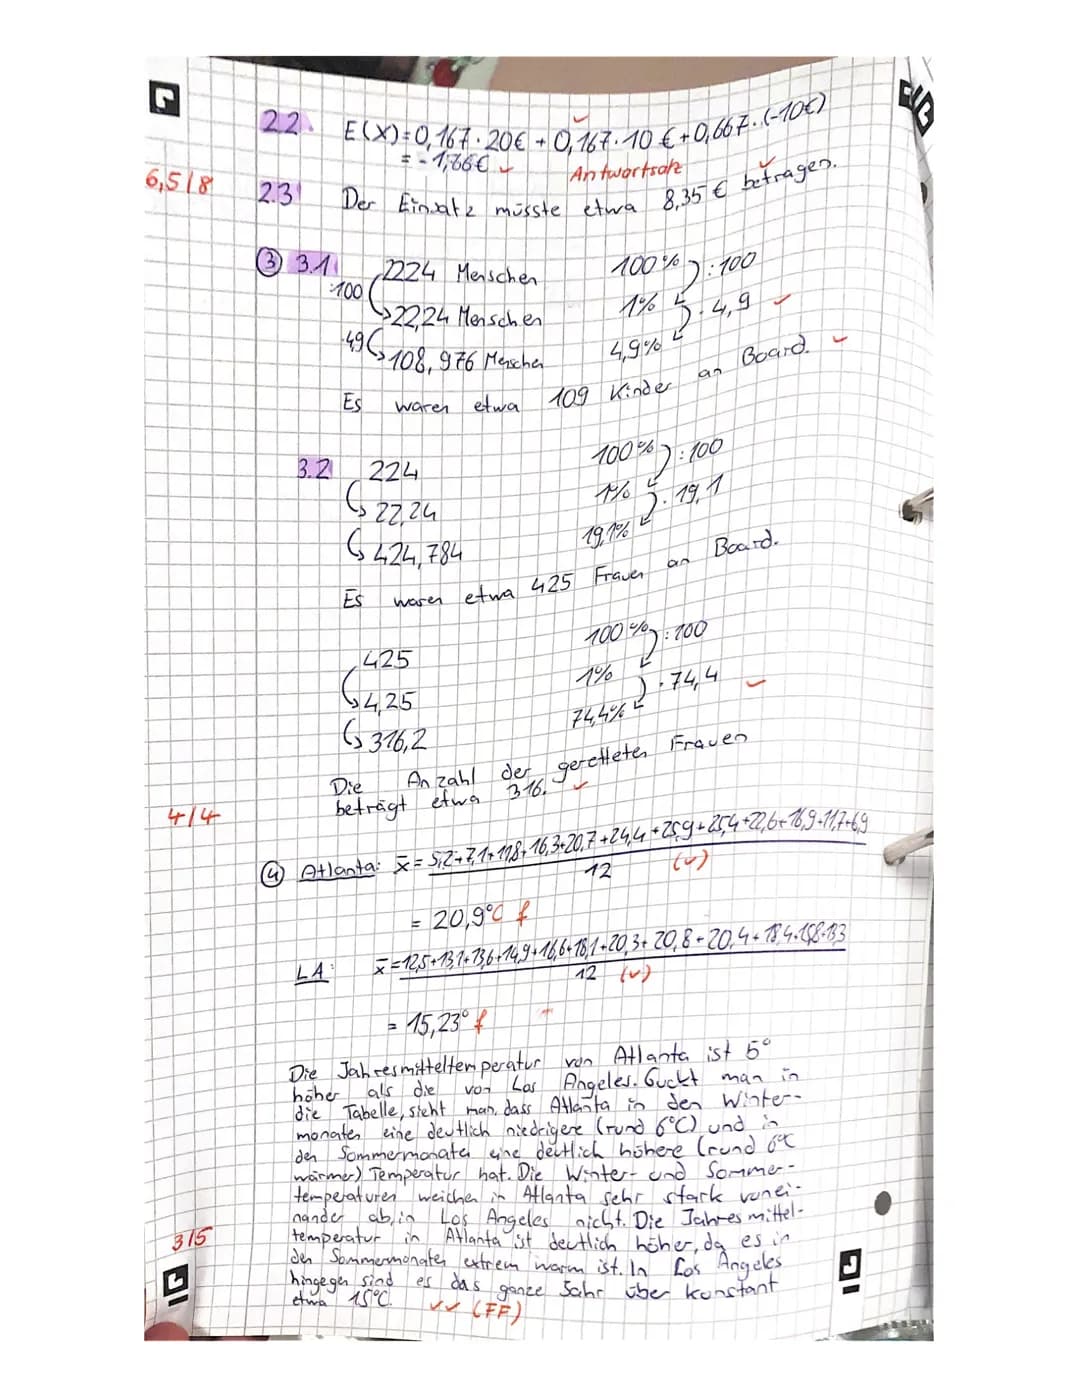 2.2 E(X)=0,167·20€ + 0,167·10€+0,667·(-10€)
= -1,66€ ✓
Antwortsatz
6,5/8
2.3 Der Einsatz müsste etwa 8,35€ betragen.
③ 3.1 2224 Menschen 100% :100
:100 22,24 Menschen 1% ·4,9 ✓
·49 108,976 Menschen 4,9%
Es waren etwa 109 Kinder an Board. ✓
3.2 224 100% :100
22,24 1% ·19,1
424,784 19,1%
Es waren etwa 425 Frauen an Board.
425 100% :100
4,25 1% ·74,4 ✓
316,2 74,4%
Die Anzahl der geretteten Frauen
beträgt etwa 316. ✓
4/4
④ Atlanta: x̄ = 5,2+7,1+11,8+16,3+20,7+24,4+25,9+25,4+22,6+16,9+11,7+6,9
12 (✓)
= 20,9°C f
LA: x̄=12,5+13,1+13,6+14,9+16,6+18,1+20,3+20,8+20,4+18,4+15,8+13,3
12 (✓)
= 15,23° f
Die Jahresmitteltemperatur von Atlanta ist 5°
höher als die von Los Angeles. Guckt man in
die Tabelle, sieht man, dass Atlanta in den Winter-
monaten eine deutlich niedrigere (rund 6°C) und in
den Sommermonaten eine deutlich höhere (rund 6°C
wärmer) Temperatur hat. Die Winter- und Sommer-
temperaturen weichen in Atlanta sehr stark vonei-
nander ab, in Los Angeles nicht. Die Jahresmittel-
temperatur in Atlanta ist deutlich höher, da es in
3/5
den Sommermonaten extrem warm ist. In Los Angeles
hingegen sind es das ganze Jahr über konstant
etwa 15°C. ✓✓ (FF)